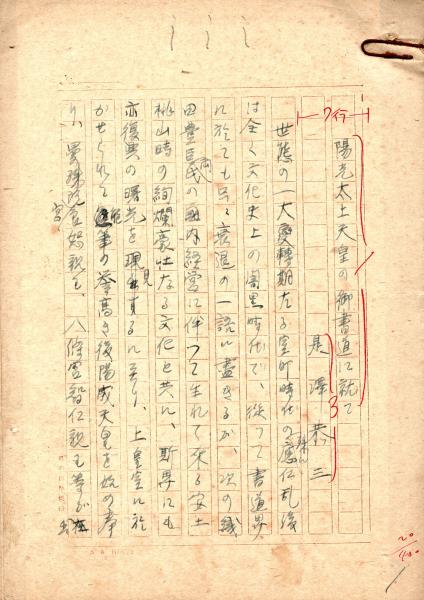 7行
陽光太上天皇の御書道に就て
3
是澤恭三
世態の一大変轉期たる室町時代の應仁乱後
は全く文化史上の闇黒時代で、従つて書道界
に於ても只々衰退の一語に盡きるが、次の織
田豊臣両氏の国内経営に伴つて生れて来る安土
桃山時の絢爛豪壮なる文化と共に、斯界にも
亦復興の曙光を見るに至り、上皇室に於
かせられて能筆の誉高き後陽成天皇を始め奉
り、曼珠院宮良恕親王、八條宮智仁親王等が
20